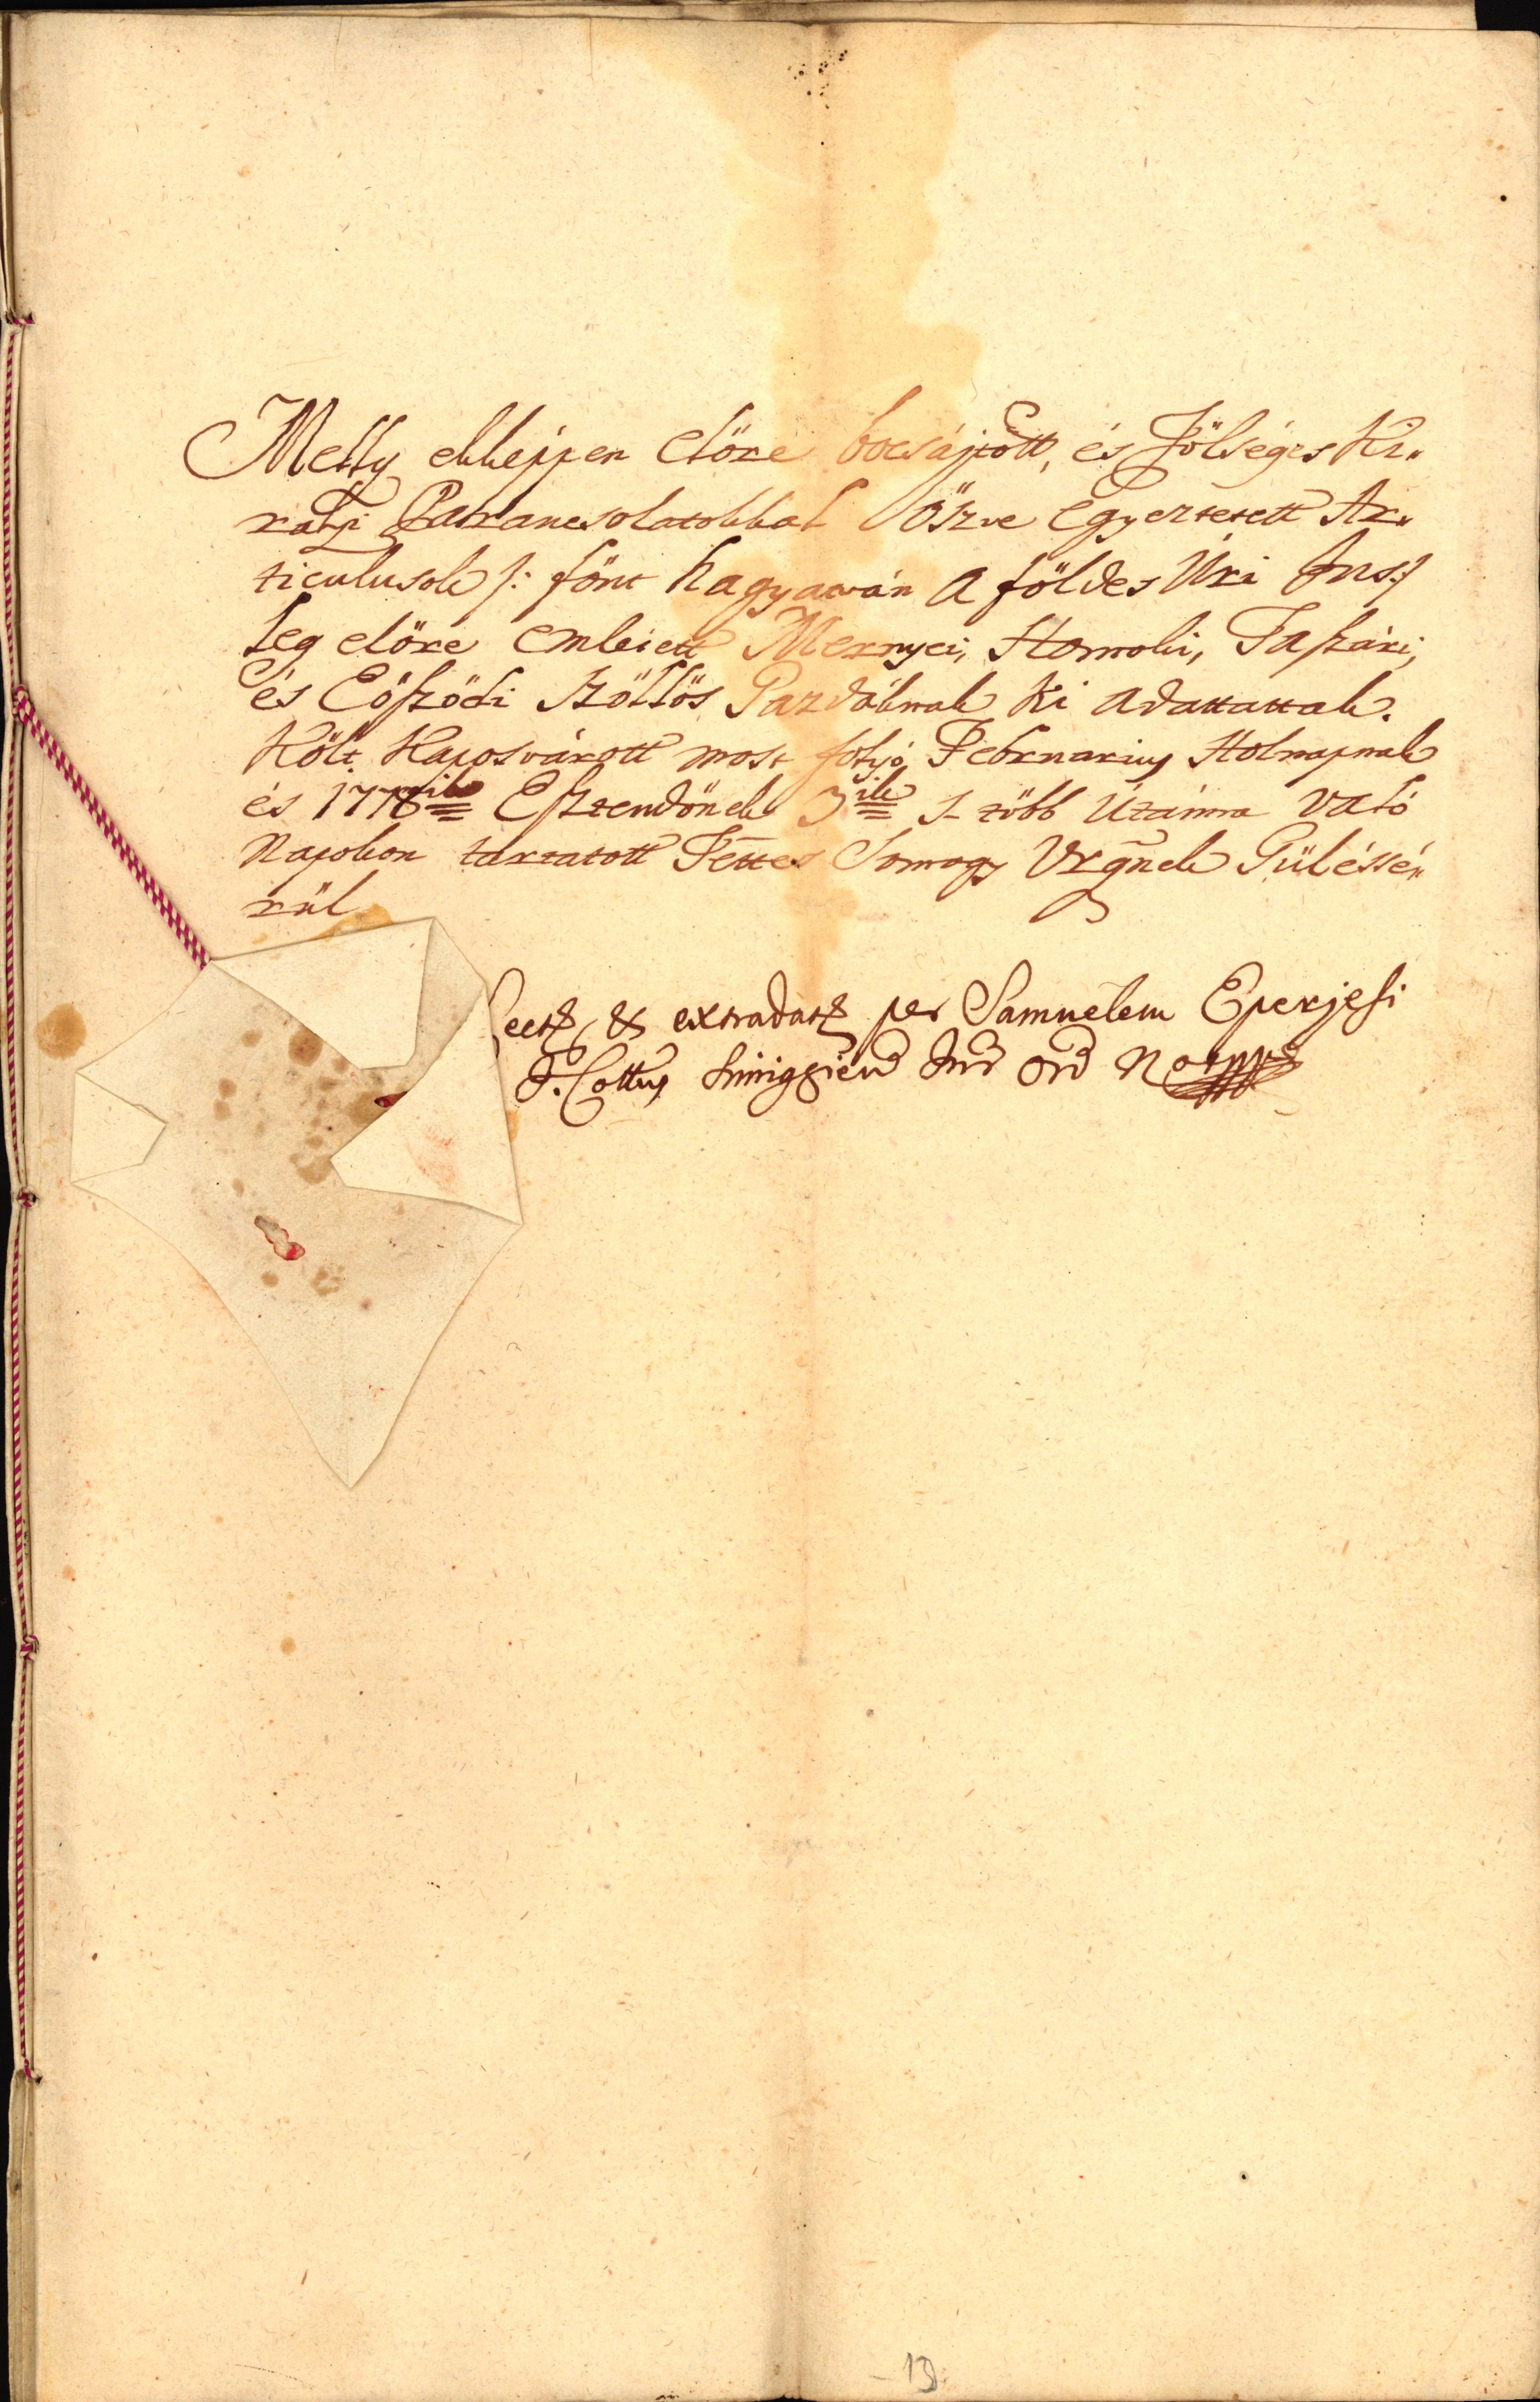 Melly ekképpen előre bocsájtott, és Fölséges Ki„
rályi Parancsolatokkal öszve egyeztetett Ar„
ticulusok /: fönt hagyatván a földes Úri Jus :/
leg előre emleiett Mernyei, Homoki, Taszári,
és Eöszödi Szöllös Gazdáknak ki adattattak.
Költ Kaposvárott most folyó Februarius Holnapnak
és 1778ik Esztendőnek 3ik 's több Utánna való
Napokon tartatott Tettes Somogy Vrgnek Gyüléssé„
rül
Lect & extradat per Samuelem Eperjesi
I. Cottus Simighien Jur Ord Not
13